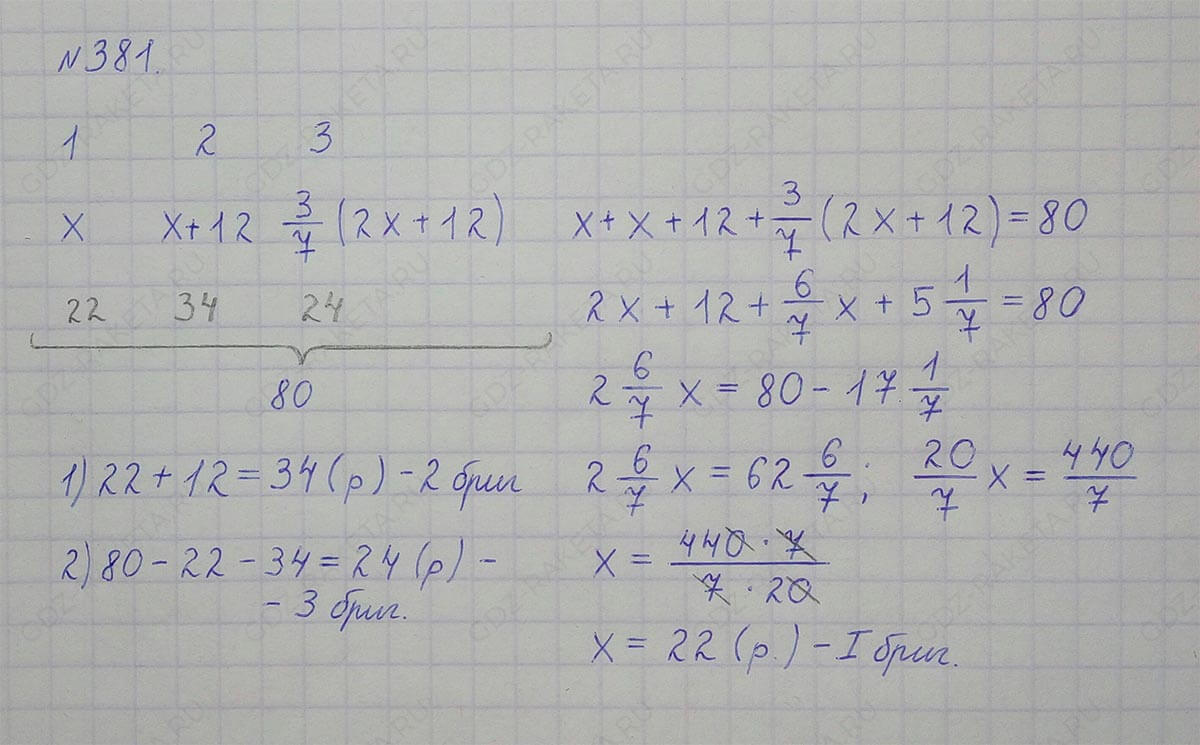 №381.
1 2 3
x x+12 3/7 (2x+12)
22 34 24
80
1) 22+12=34(р)-2 бриг
2) 80-22-34=24(р)-
-3 бриг.
x+x+12+3/7(2x+12)=80
2x+12+6/7x+5 1/7=80
2 6/7 x=80-17 1/7
2 6/7 x=62 6/7; 20/7 x=440/7
x=440·7/7·20
x=22(р.)-I бриг.
GDZ-RAKETA.RU